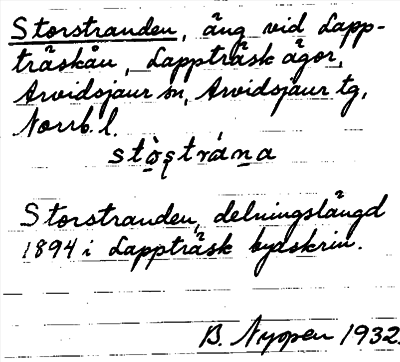 Storstranden, äng vid Lapp-
träskån, Lappträsk ägor,
Arvidsjaur sn, Arvidsjaur tg,
Norrb. l.
Storstranden, delningslängd
1894 i Lappträsk byaskrin.
B. Nyopen 1932.